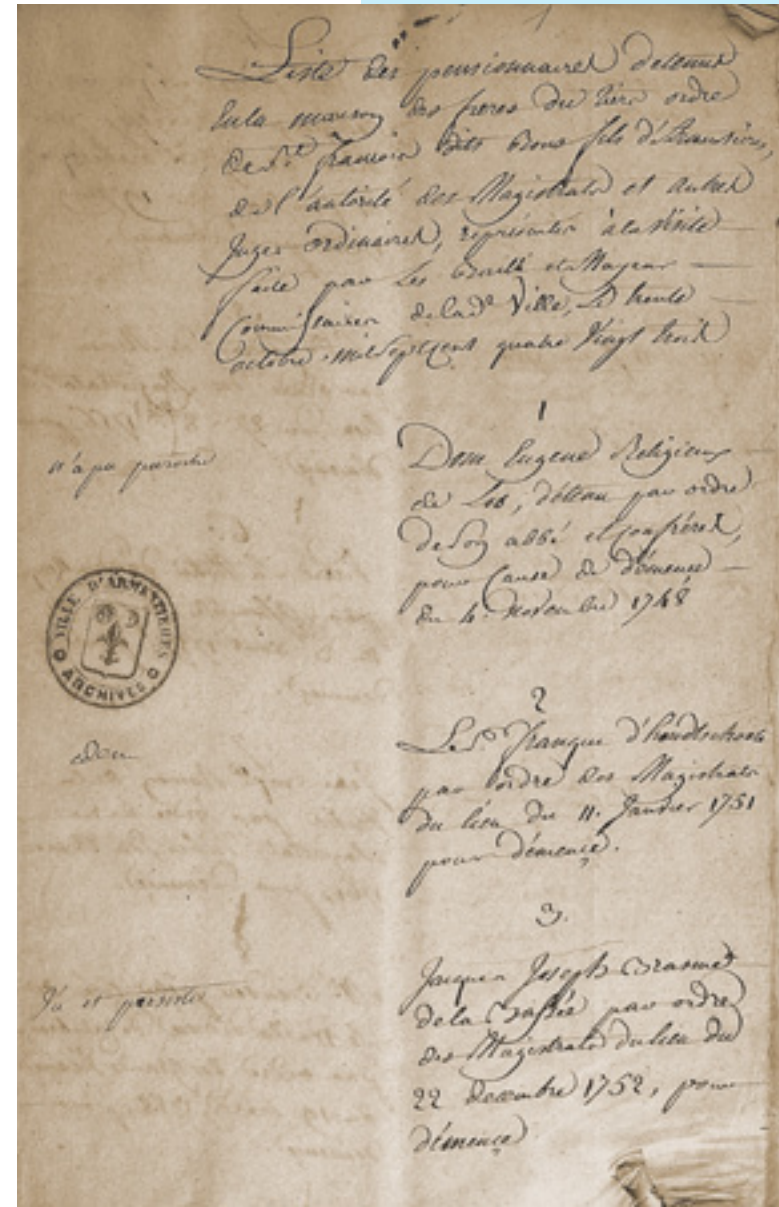 1
Liste des pensionnaires detenus
en la maison des freres du tiers ordre
de St. françois dits Bons fils d'Armentieres,
de l'autorité des Magistrats et autres
Juges ordinaires, représentés à la visite
faite par les Bailli et Mayeur
Commissaires de lad.e Ville, Le trente
octobre mil sept cent quatre Vingt trois
1
n'a pu paroitre
Dom Eugene Religieux
de Loo, détenu par ordre
de son abbé et confréres,
pour Cause de démence
du 4. novembre 1748
VILLE D'ARMENTIERES
ARCHIVES
2
idem
Le Sr. françois d'hondtschoote
par ordre des Magistrats
du lieu du 11. Janvier 1751
pour démence.
3.
Vu et
Jacques Joseph
de la Bassée par ordre
des Magistrats du lieu du
22 decembre 1752, pour
démence